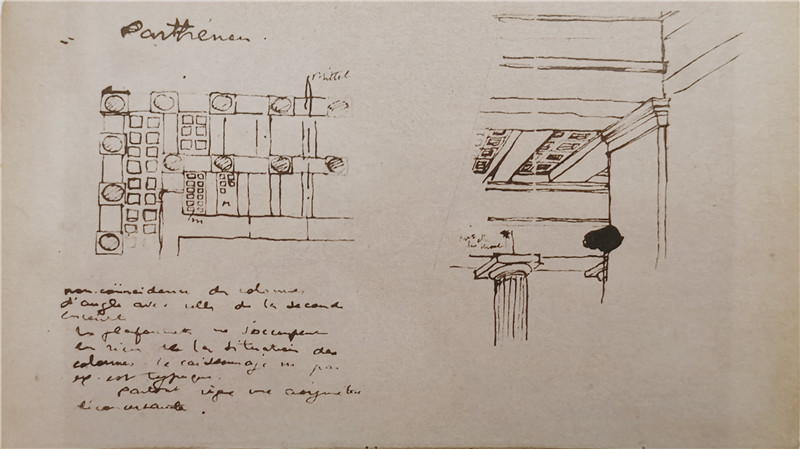 Parthénon.
non-coïncidence des colonnes
d'angle avec celles de la seconde
Les plafonnettes ne s'occupent
en rien de la situation des
colonnes le caissonnage m par
ex. est typique.
Partout règne une asymétrie
déconcertante.
m
m